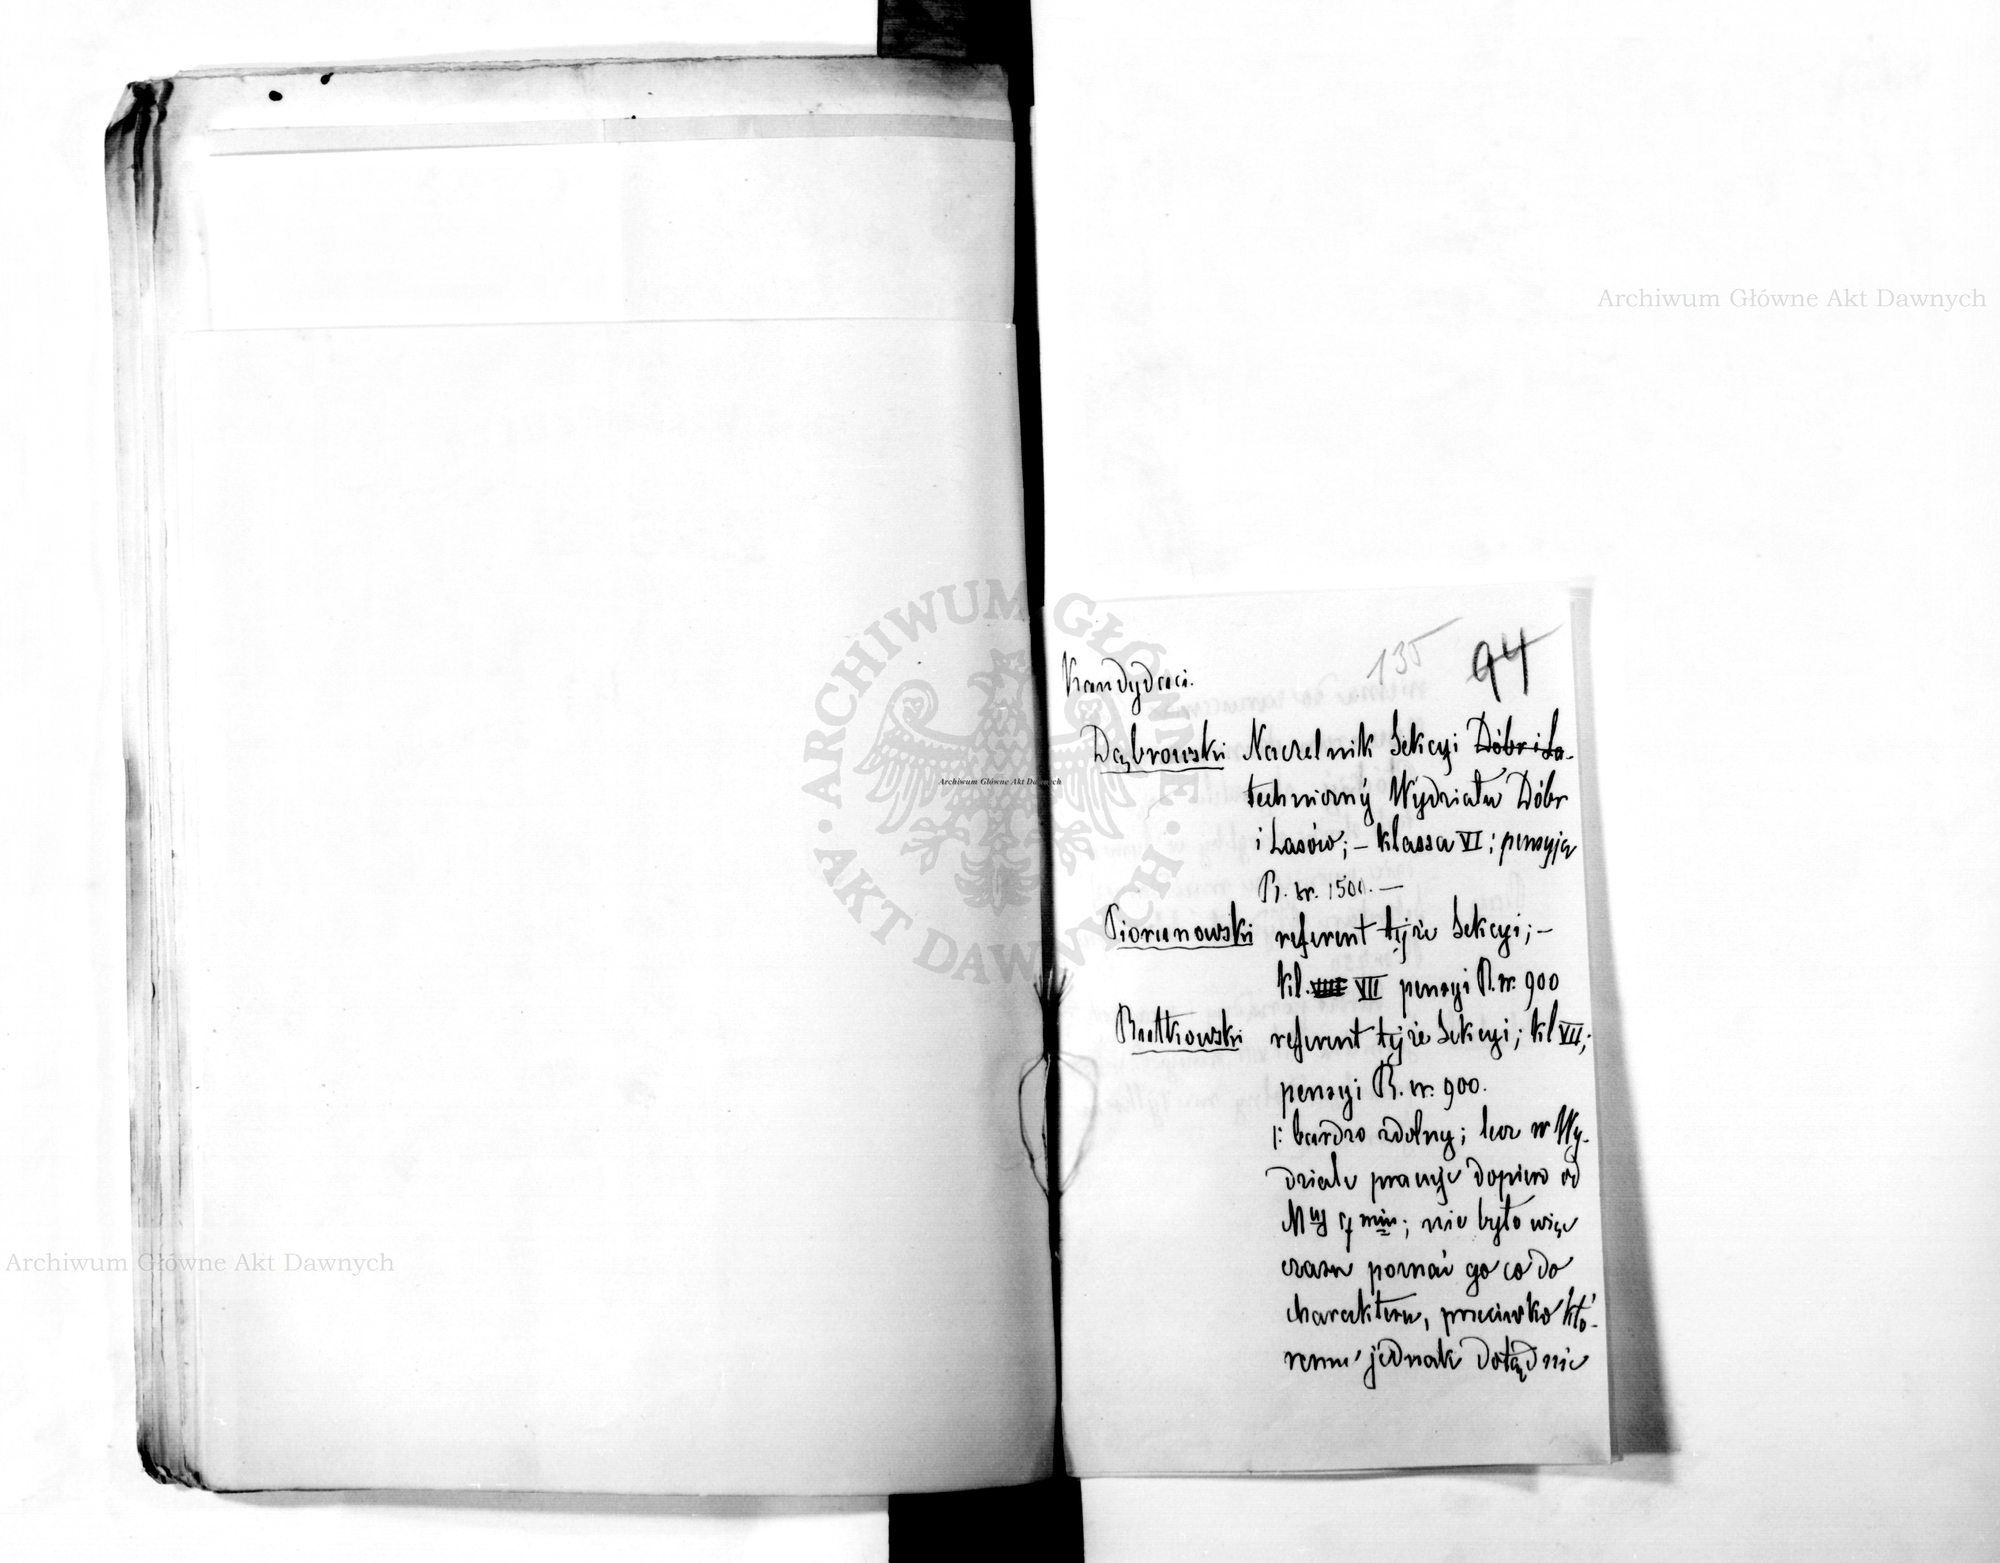 Archiwum Główne Akt Dawnych
135 94
Kandydaci.
Dąbrowski Naczelnik Sekcyi Dóbr i La-
techniczny Wydziału Dóbr
i Lasów; – klassa VI; pensyja
R. sr. 1500. –
Piorunowski referent tejże Sekcyi; –
kl. VII pensyi R. sr. 900
referent tejże Sekcyi; kl VII;
pensyi R. sr. 900.
/: bardzo zdolny; lecz w Wy-
dziale pracuje dopiero od
nie było więc
czasu poznać go co do
charakteru, przeciwko któ-
remu jednak dotąd nic
ARCHIWUM GŁÓWNE AKT DAWNYCH
Archiwum Główne Akt Dawnych
Archiwum Główne Akt Dawnych